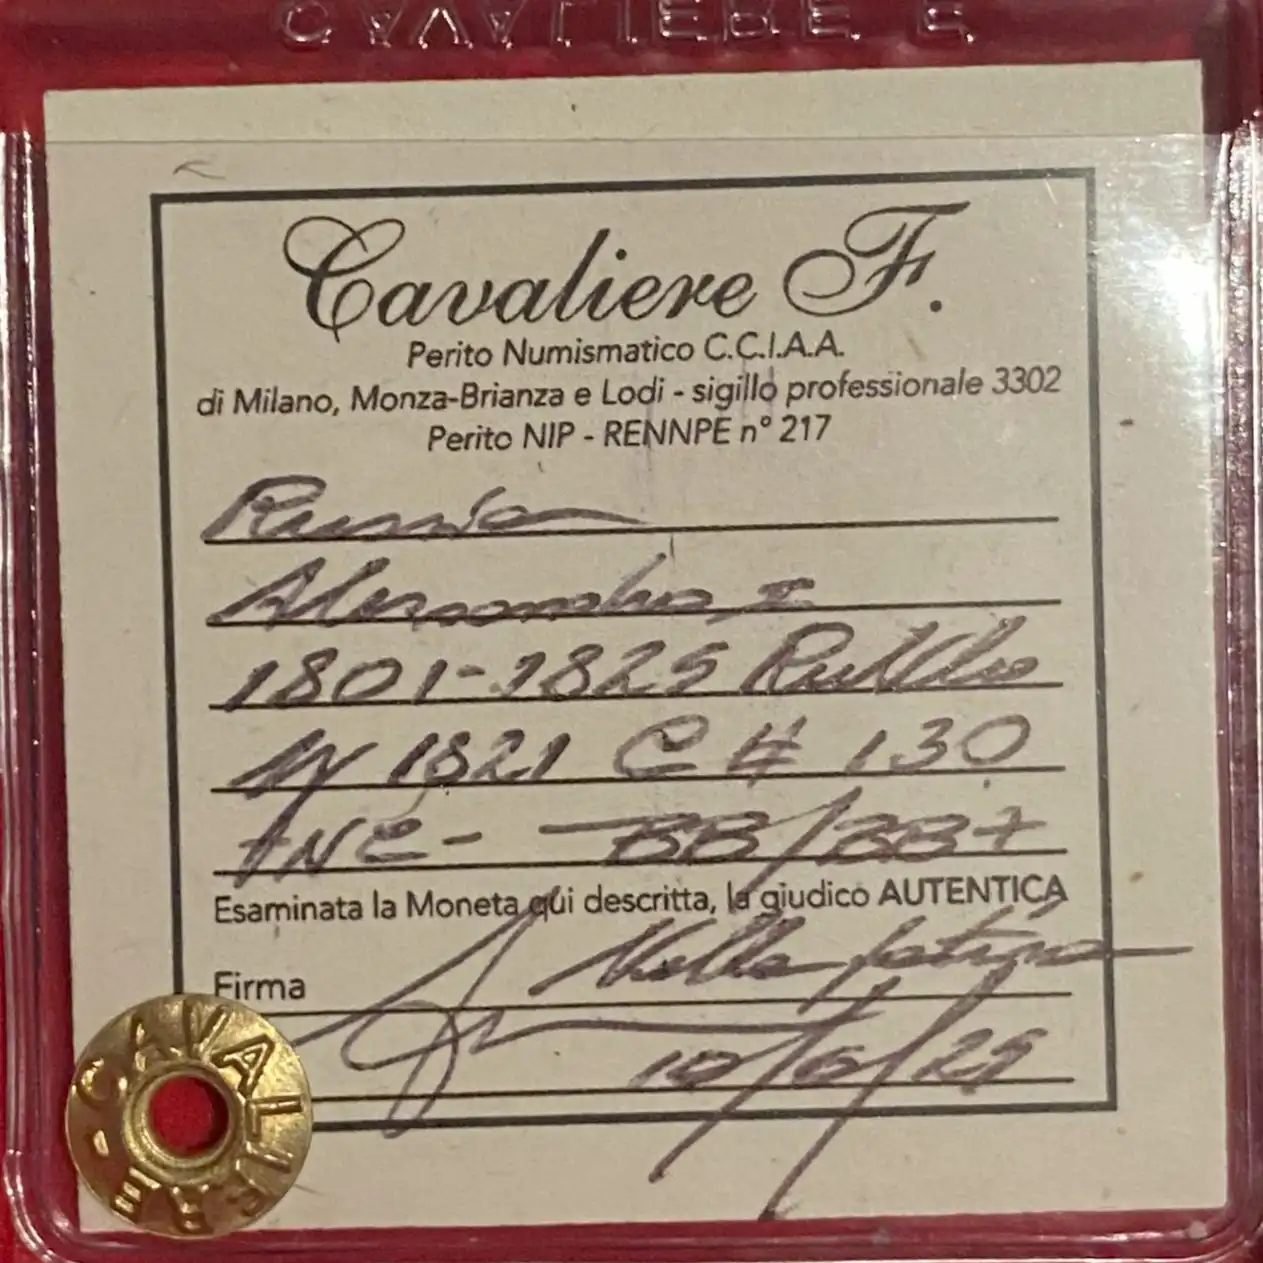 CAVALIERE F
Cavaliere F.
Perito Numismatico C.C.I.A.A.
di Milano, Monza-Brianza e Lodi - sigillo professionale 3302
Perito NIP - RENNPE n° 217
Russia
Alessandro I
1801-1825 Rublo
1821 C # 130
BB/BB+
Esaminata la Moneta qui descritta, la giudico AUTENTICA
Firma
10/6/25
CAVALIERE -